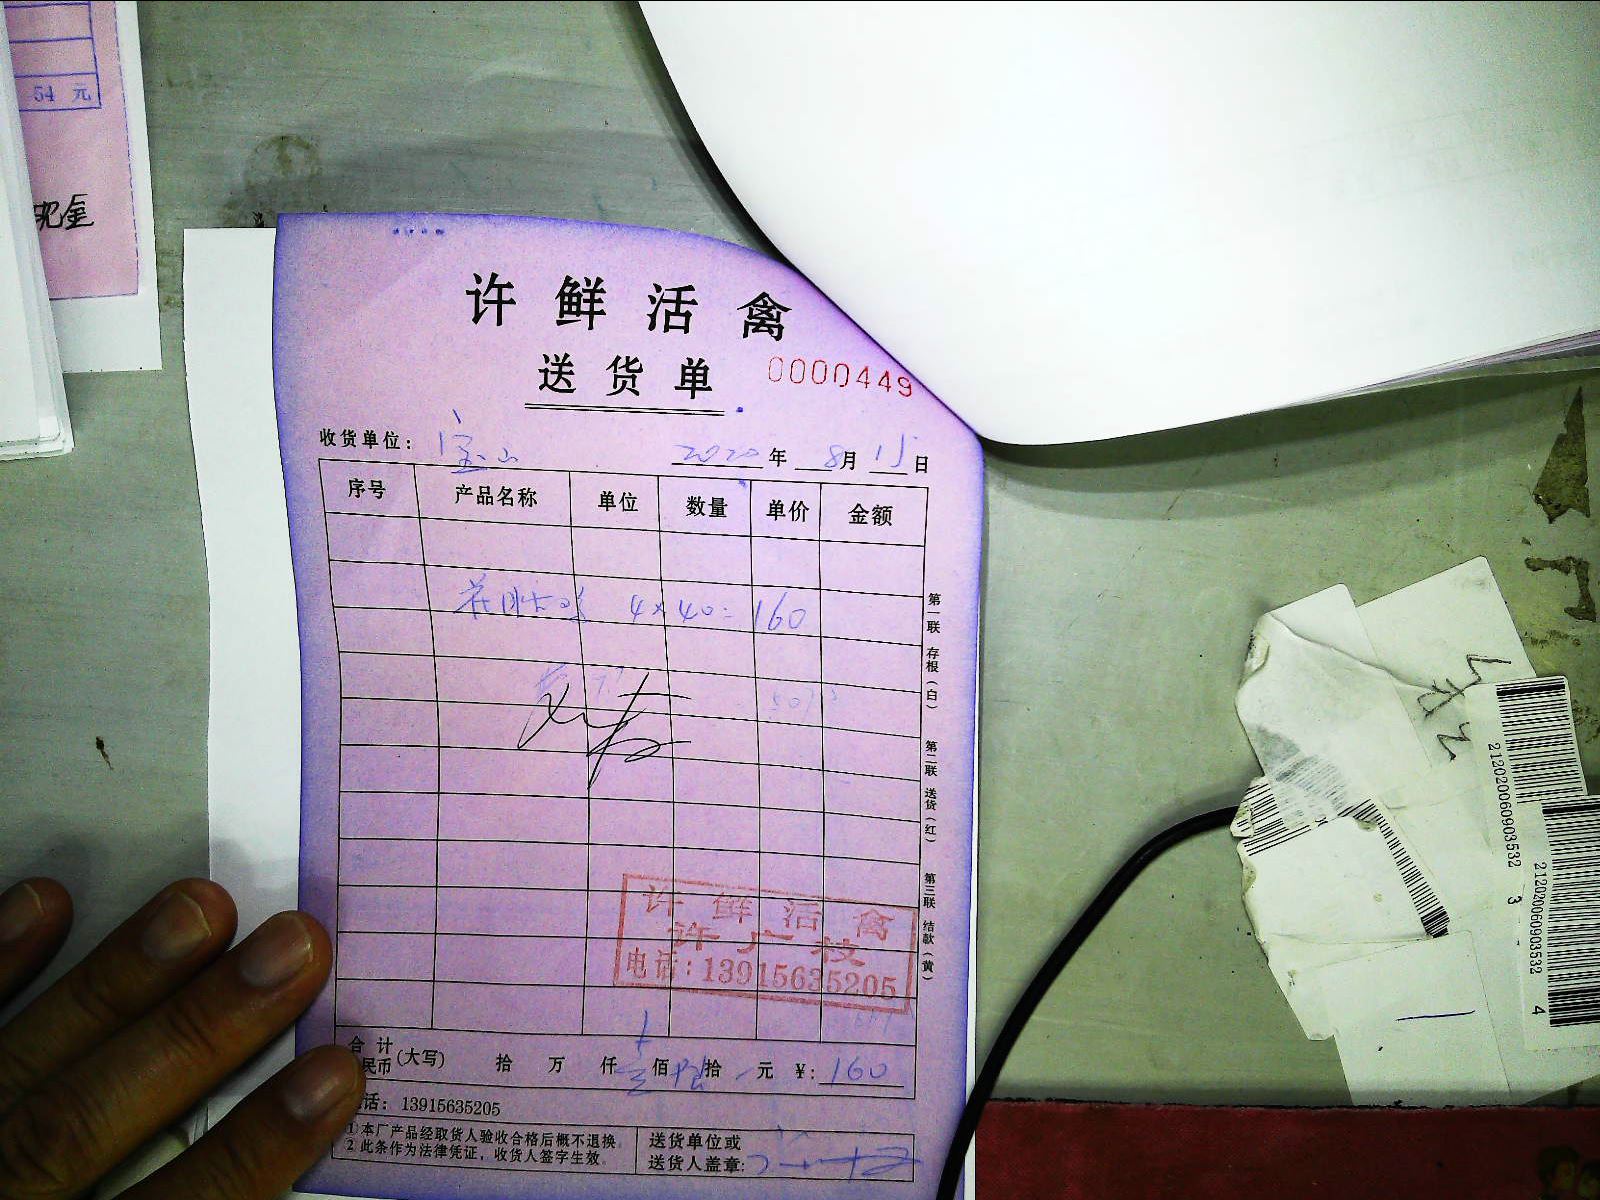 54 元
现金
许鲜活禽
送货单 0000449
收货单位： 宝山 2020 年 8 月 15 日
序号 产品名称 单位 数量 单价 金额
4×40=160
第一联 存根（白）
第二联 送货（红）
第三联 结款（黄）
许鲜活禽
许广枝
电话：13915635205
合计
民币（大写） 拾 万 仟 壹 佰 陆 拾 元 ￥：160
话：13915635205
1 本厂产品经取货人验收合格后概不退换。
2 此条作为法律凭证，收货人签字生效。
送货单位或
送货人盖章：
212020060903532 3
212020060903532 4